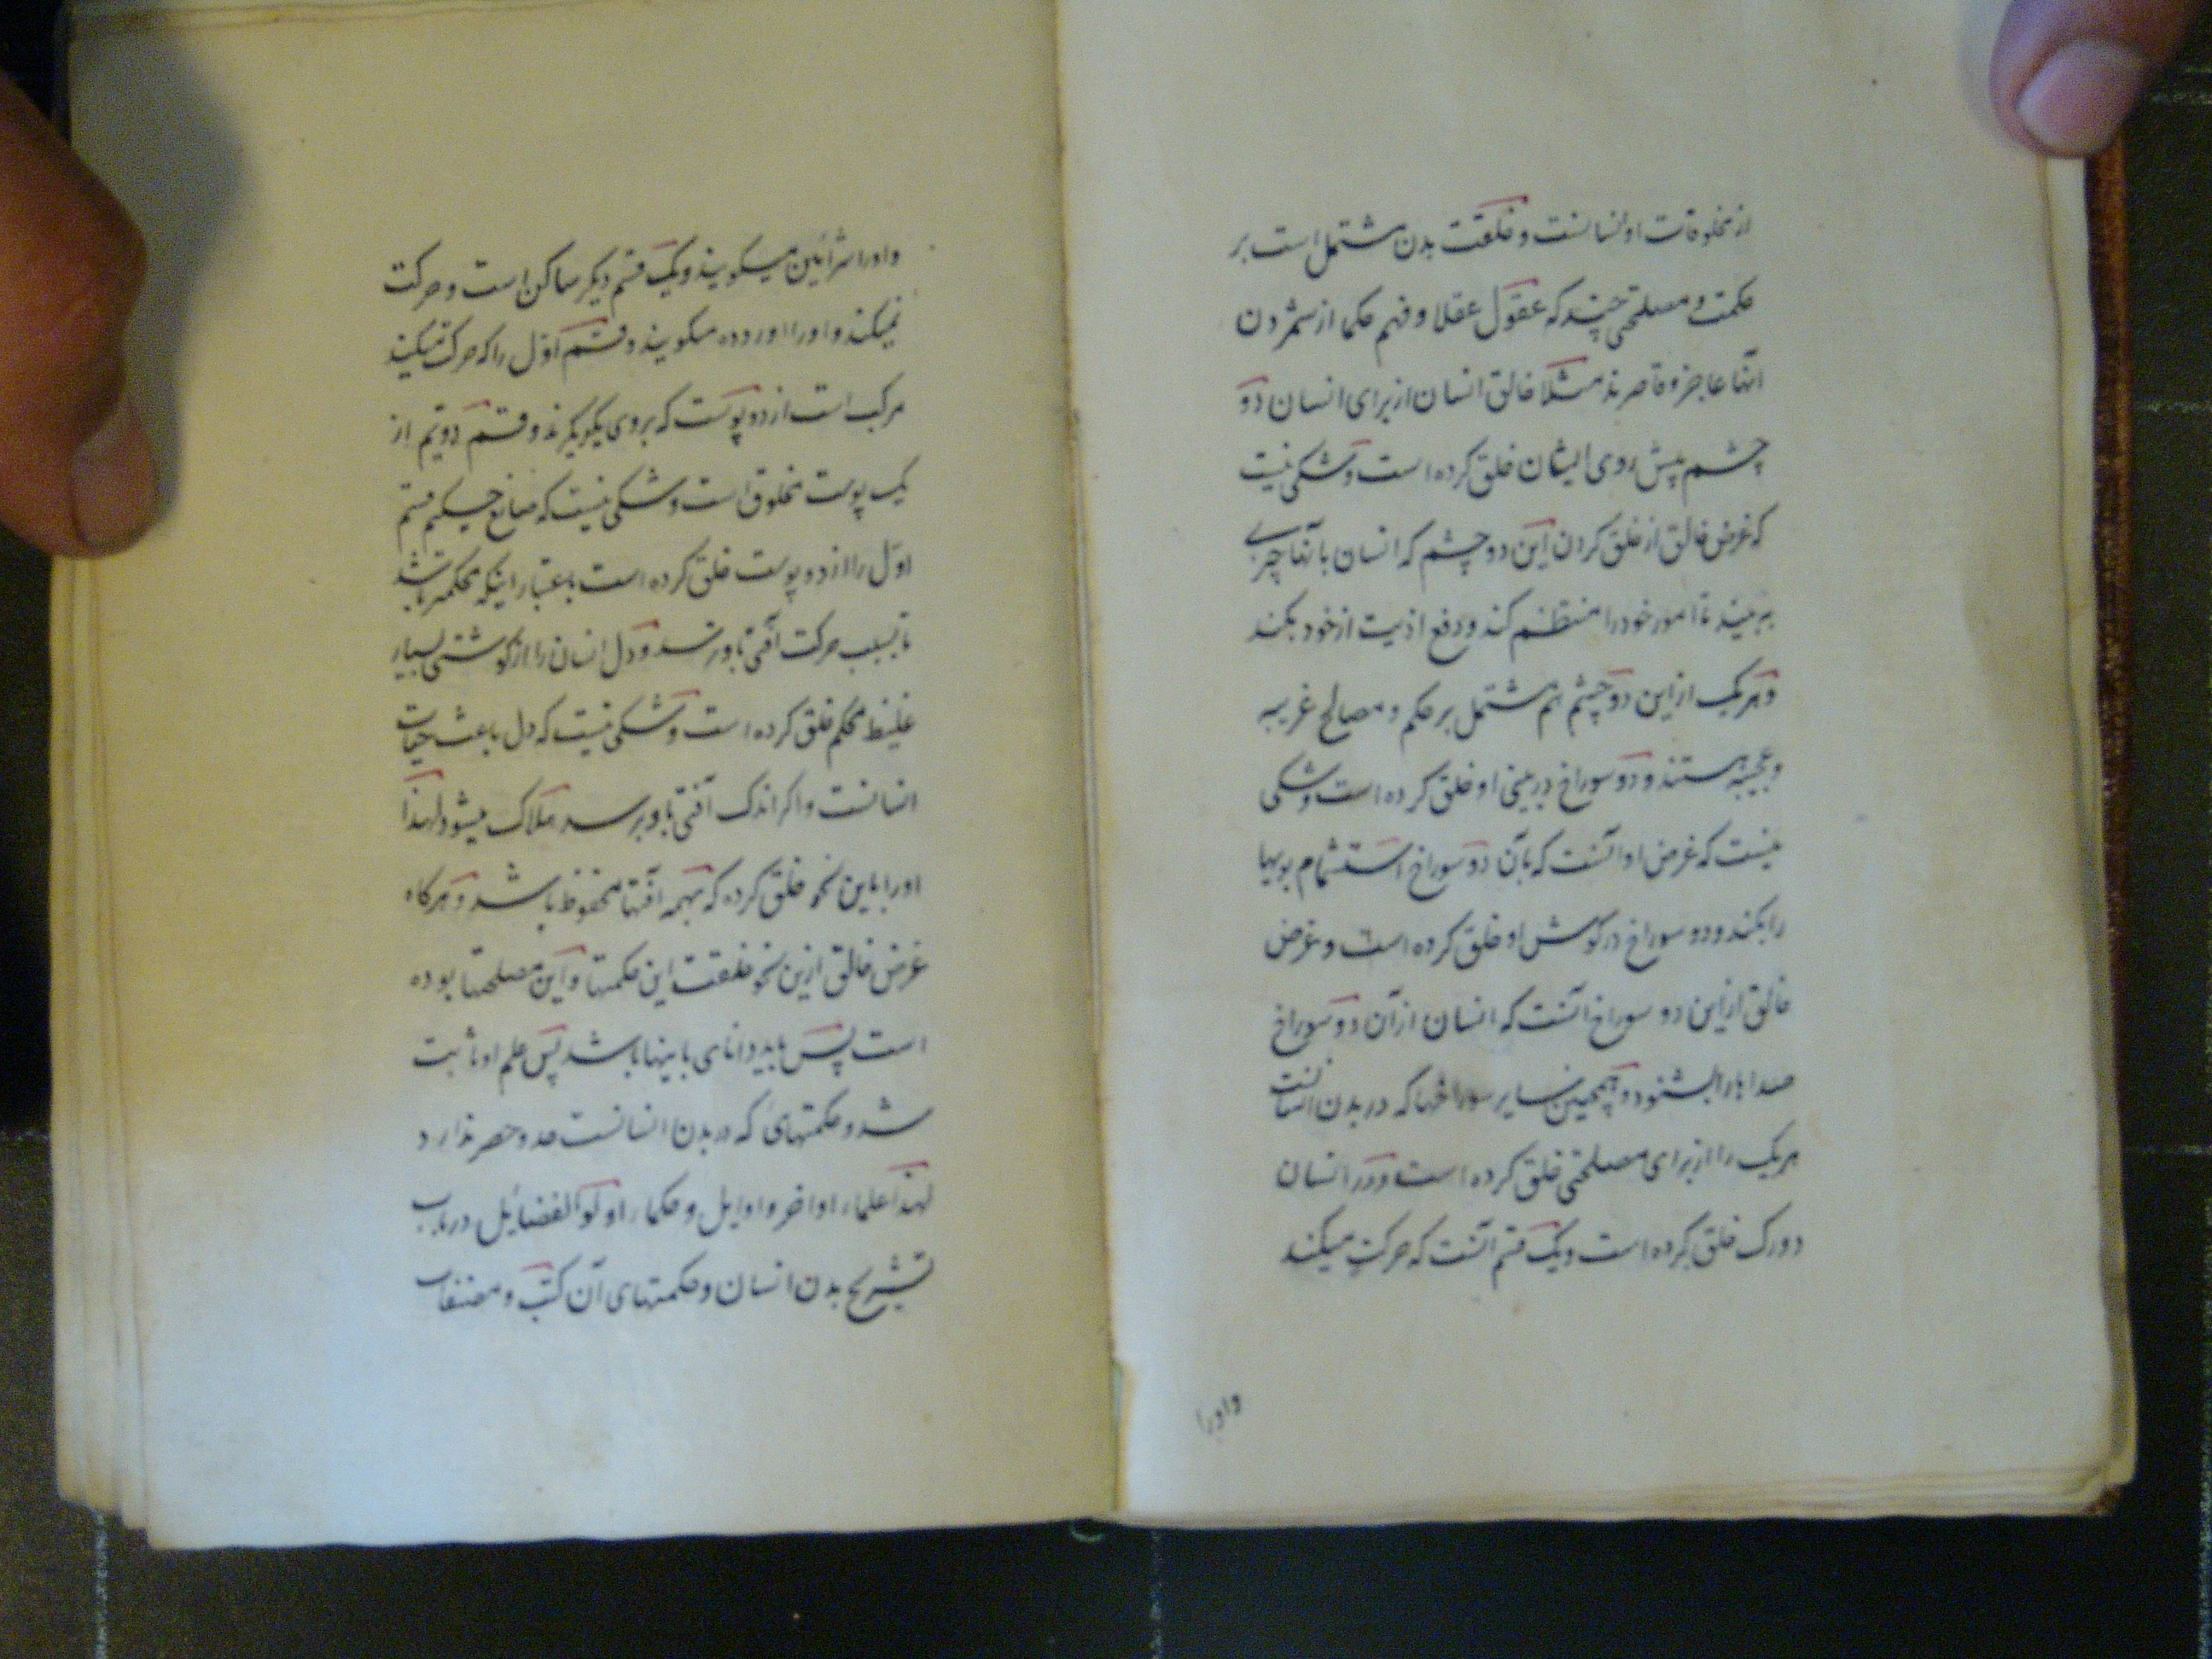 از مخلوقات او انسانست و خلقت بدن مشتمل است بر
حکمت و مصلحتی چند که عقول عقلا و فهم حکما از شمردن
آنها عاجز و قاصرند مثلا خالق انسان از برای انسان دو
چشم پیش روی ایشان خلق کرده است و شکی نیست
که غرض خالق از خلق کردن این دو چشم که انسان بآنها چیزی
به بیند تا امور خود را منتظم کند و دفع اذیت از خود بکند
و هر یک از این دو چشم هم مشتمل بر حکم و مصالح غریبه
و عجیبه هستند و دو سوراخ در بینی او خلق کرده است و شکی
نیست که غرض او آنست که بآن دو سوراخ استشمام بویها
را بکند و دو سوراخ در کوش او خلق کرده است و غرض
خالق از این دو سوراخ آنست که انسان از آن دو سوراخ
صداها را بشنود و همچنین سایر سوراخها که در بدن انسانست
هر یک را از برای مصلحتی خلق کرده است و در انسان
دو رک خلق کرده است و یک قسم آنست که حرکت میکند
واورا
واورا شرائین میکویند و یک قسم دیکر ساکن است و حرکت
نمیکند و اورا اورده میکویند و قسم اول را که حرکت میکند
مرکب است از دو پوست که بروی یکدیکرند و قسم دویم از
یک پوست مخلوق است و شکی نیست که صانع حکیم قسم
اول را از دو پوست خلق کرده است باعتبار اینکه محکمتر باشد
تا بسبب حرکت آفتی باو نرسد و دل انسان را از کوشتی بسیار
غلیظ محکم خلق کرده است و شکی نیست که دل باعث حیات
انسانست و اکر اندک آفتی باو برسد هلاک میشود لهذا
اورا باین نحو خلق کرده که بهمه آفتها محفوظ باشد و هرکاه
غرض خالق ازین نحو خلقت این حکمتها و این مصلحتها بوده
است پس باید دانای باینها باشد پس علم او ثابت
شد و حکمتهائی که در بدن انسانست حد و حصر ندارد
لهذا علماء اواخر و اوایل و حکماء اولو الفضایل در باب
تشریح بدن انسان و حکمتهای آن کتب و مصنفات